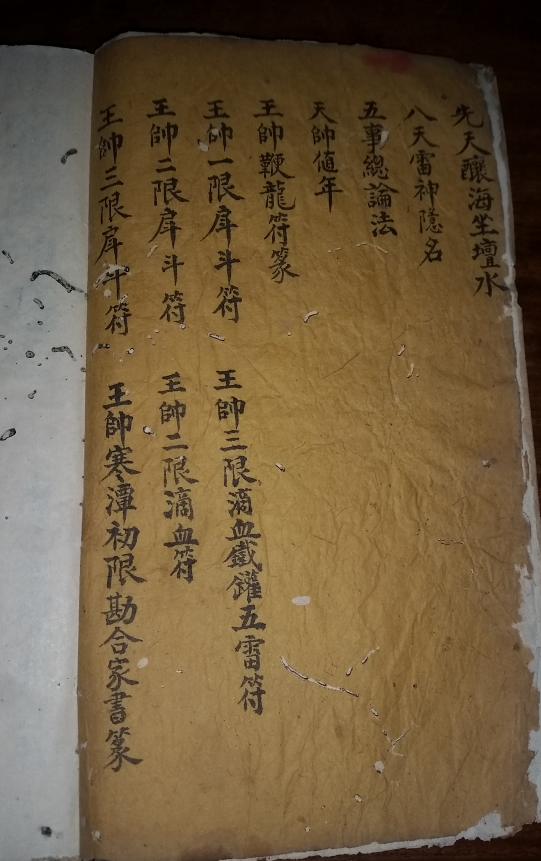 先天釀海坐壇水
八天雷神隱名
五事總論法
天帥値年
王帥鞭龍符篆
王帥一限戽斗符
王帥三限滴血鐵鑵五雷符
王帥二限戽斗符
王帥二限滴血符
王帥三限戽斗符
王帥寒潭初限勘合家書篆